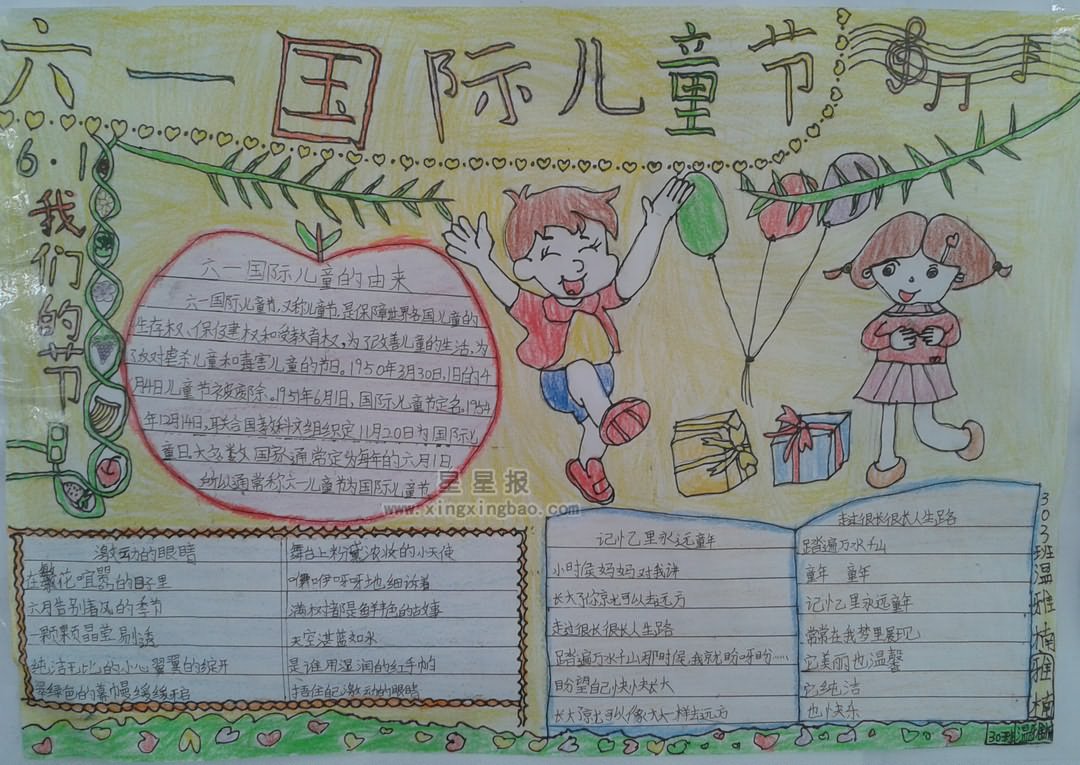 六一国际儿童节
6·1
我们的节
六一国际儿童的由来
六一国际儿童节,又称儿童节,是保障世界各国儿童的
生存权、保健权和受教育权,为了改善儿童的生活,为
了反对虐杀儿童和毒害儿童的节日。1950年3月30日,旧的4
月4日儿童节被废除。1951年6月1日,国际儿童节定名。1954
年12月14日,联合国教科文组织定11月20日为国际儿
童日大多数国家通常定为每年的六月1日
所以通常称六一儿童节为国际儿童节
星星报
www.xingxingbao.com
激动的眼睛
在繁花喧嚣的日子里
六月告别春风的季节
一颗颗晶莹剔透
纯洁无比的小心翼翼的绽开
翠绿色的幕幔缓缓开启
舞台上粉黛浓妆的小天使
咿咿呀呀地细诉着
满树都是鲜艳的故事
天空湛蓝如水
是谁用湿润的红手帕
捂住自己激动的眼睛
记忆里永远童年
小时候妈妈对我讲
长大了你就可以去远方
走过很长很长人生路
踏遍万水千山那时候,我就盼呀盼……
盼望自己快快长大
长大了就可以像大人一样去远方
走过很长很长人生路
踏遍万水千山
童年 童年
记忆里永远童年
常常在我梦里展现
它美丽也温馨
它纯洁
也快乐
303班温雅楠
雅楠
303班温雅楠